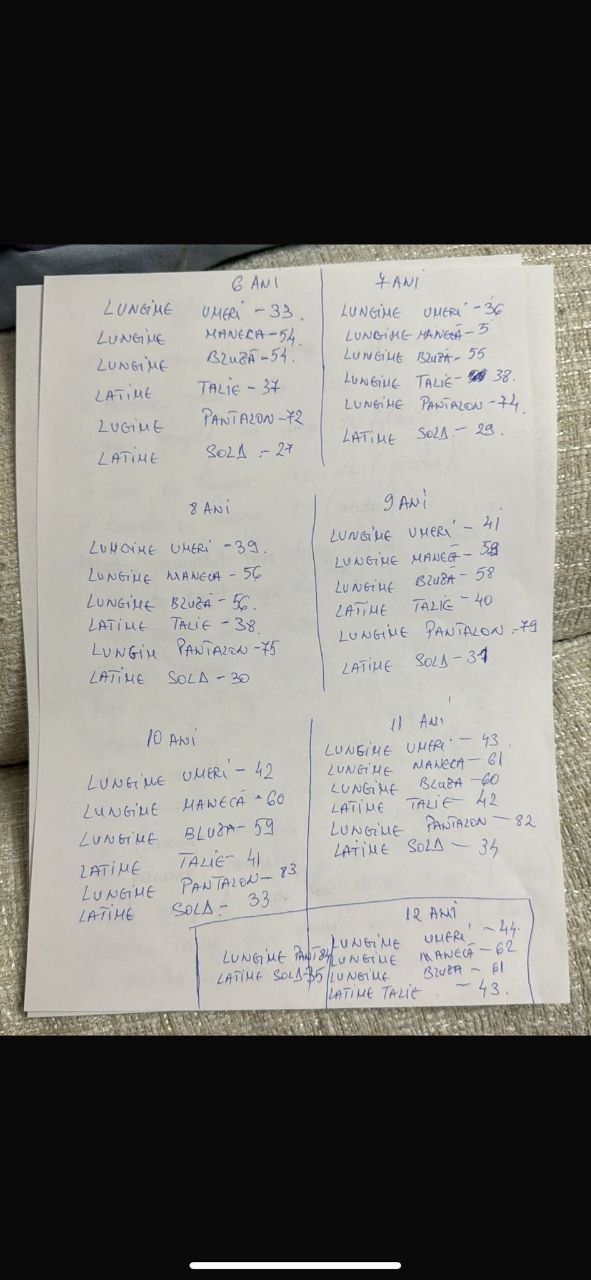 6 ANI
LUNGIME UMERI - 33.
LUNGIME MANECA - 54.
LUNGIME BLUZĂ - 54.
LATIME TALIE - 37
LUGIME PANTALON - 72
LATIME SOLD - 27
7 ANI
LUNGIME UMERI - 36
LUNGIME MANECĂ - 5
LUNGIME BLUZĂ - 55
LUNGIME TALIE - 38.
LUNGIME PANTALON - 74.
LATIME SOLD - 29.
8 ANI
LUNGIME UMERI - 39.
LUNGIME MANECA - 56
LUNGIME BLUZĂ - 56.
LATIME TALIE - 38.
LUNGIM PANTALON - 75
LATIME SOLD - 30
9 ANI
LUNGIME UMERI - 41
LUNGIME MANECĂ -
LUNGIME BLUZĂ - 58
LATIME TALIE - 40
LUNGIME PANTALON - 79
LATIME SOLD - 31
10 ANI
LUNGIME UMERI - 42
LUNGIME MANECĂ - 60
LUNGIME BLUZA - 59
LATIME TALIE - 41
LUNGIME PANTALON - 83
LATIME SOLD - 33
11 ANI
LUNGIME UMERI - 43.
LUNGIME MANECA - 61
LUNGIME BLUZA - 60
LATIME TALIE - 42
LUNGIME PANTALON - 82
LATIME SOLD - 34
12 ANI
LUNGIME UMERI - 44.
LUNGIME MANECĂ - 62
LUNGIME BLUZA - 61
LATIME TALIE - 43.
LUNGIME PANT 84
LATIME SOLD - 35